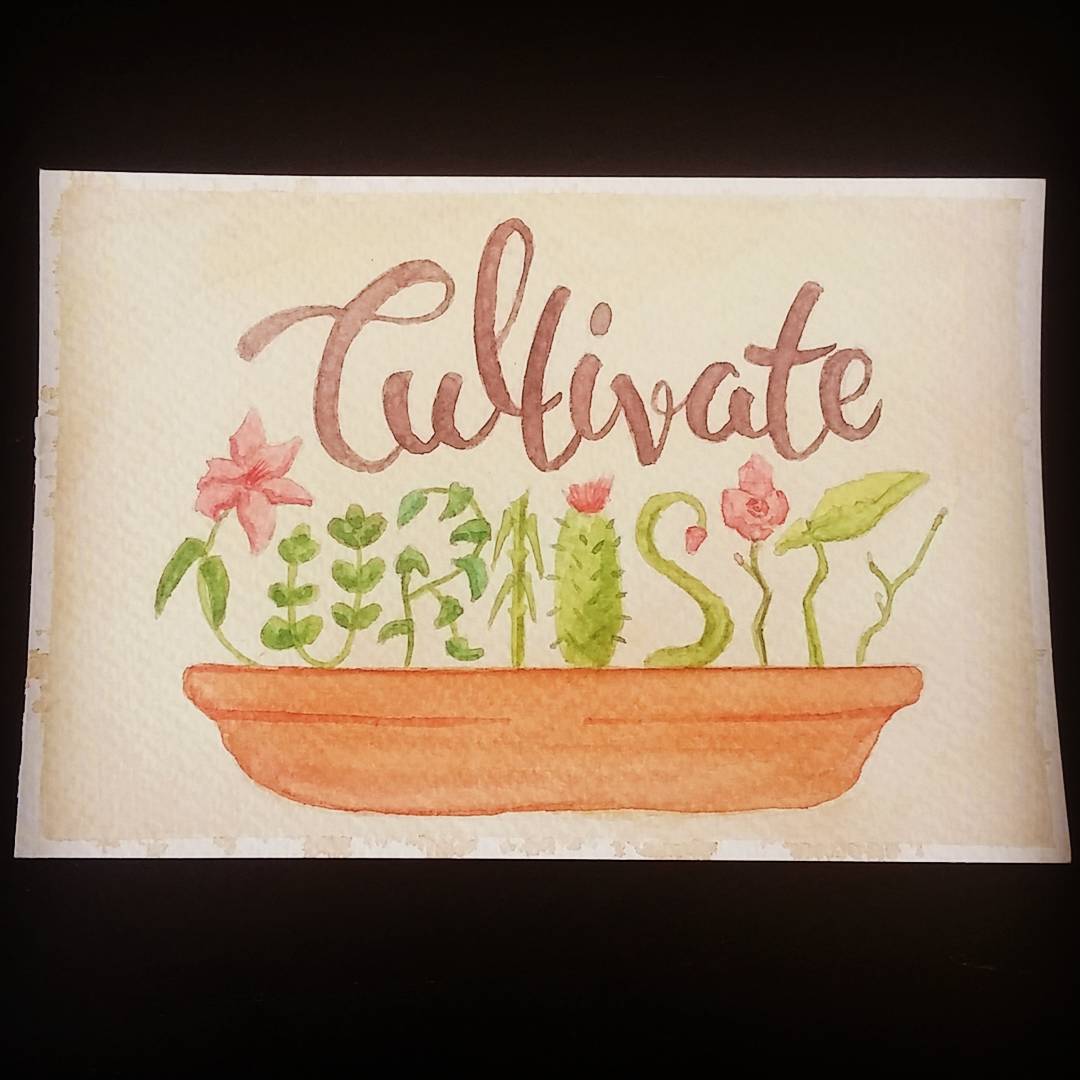 Cultivate
CURIOSITY